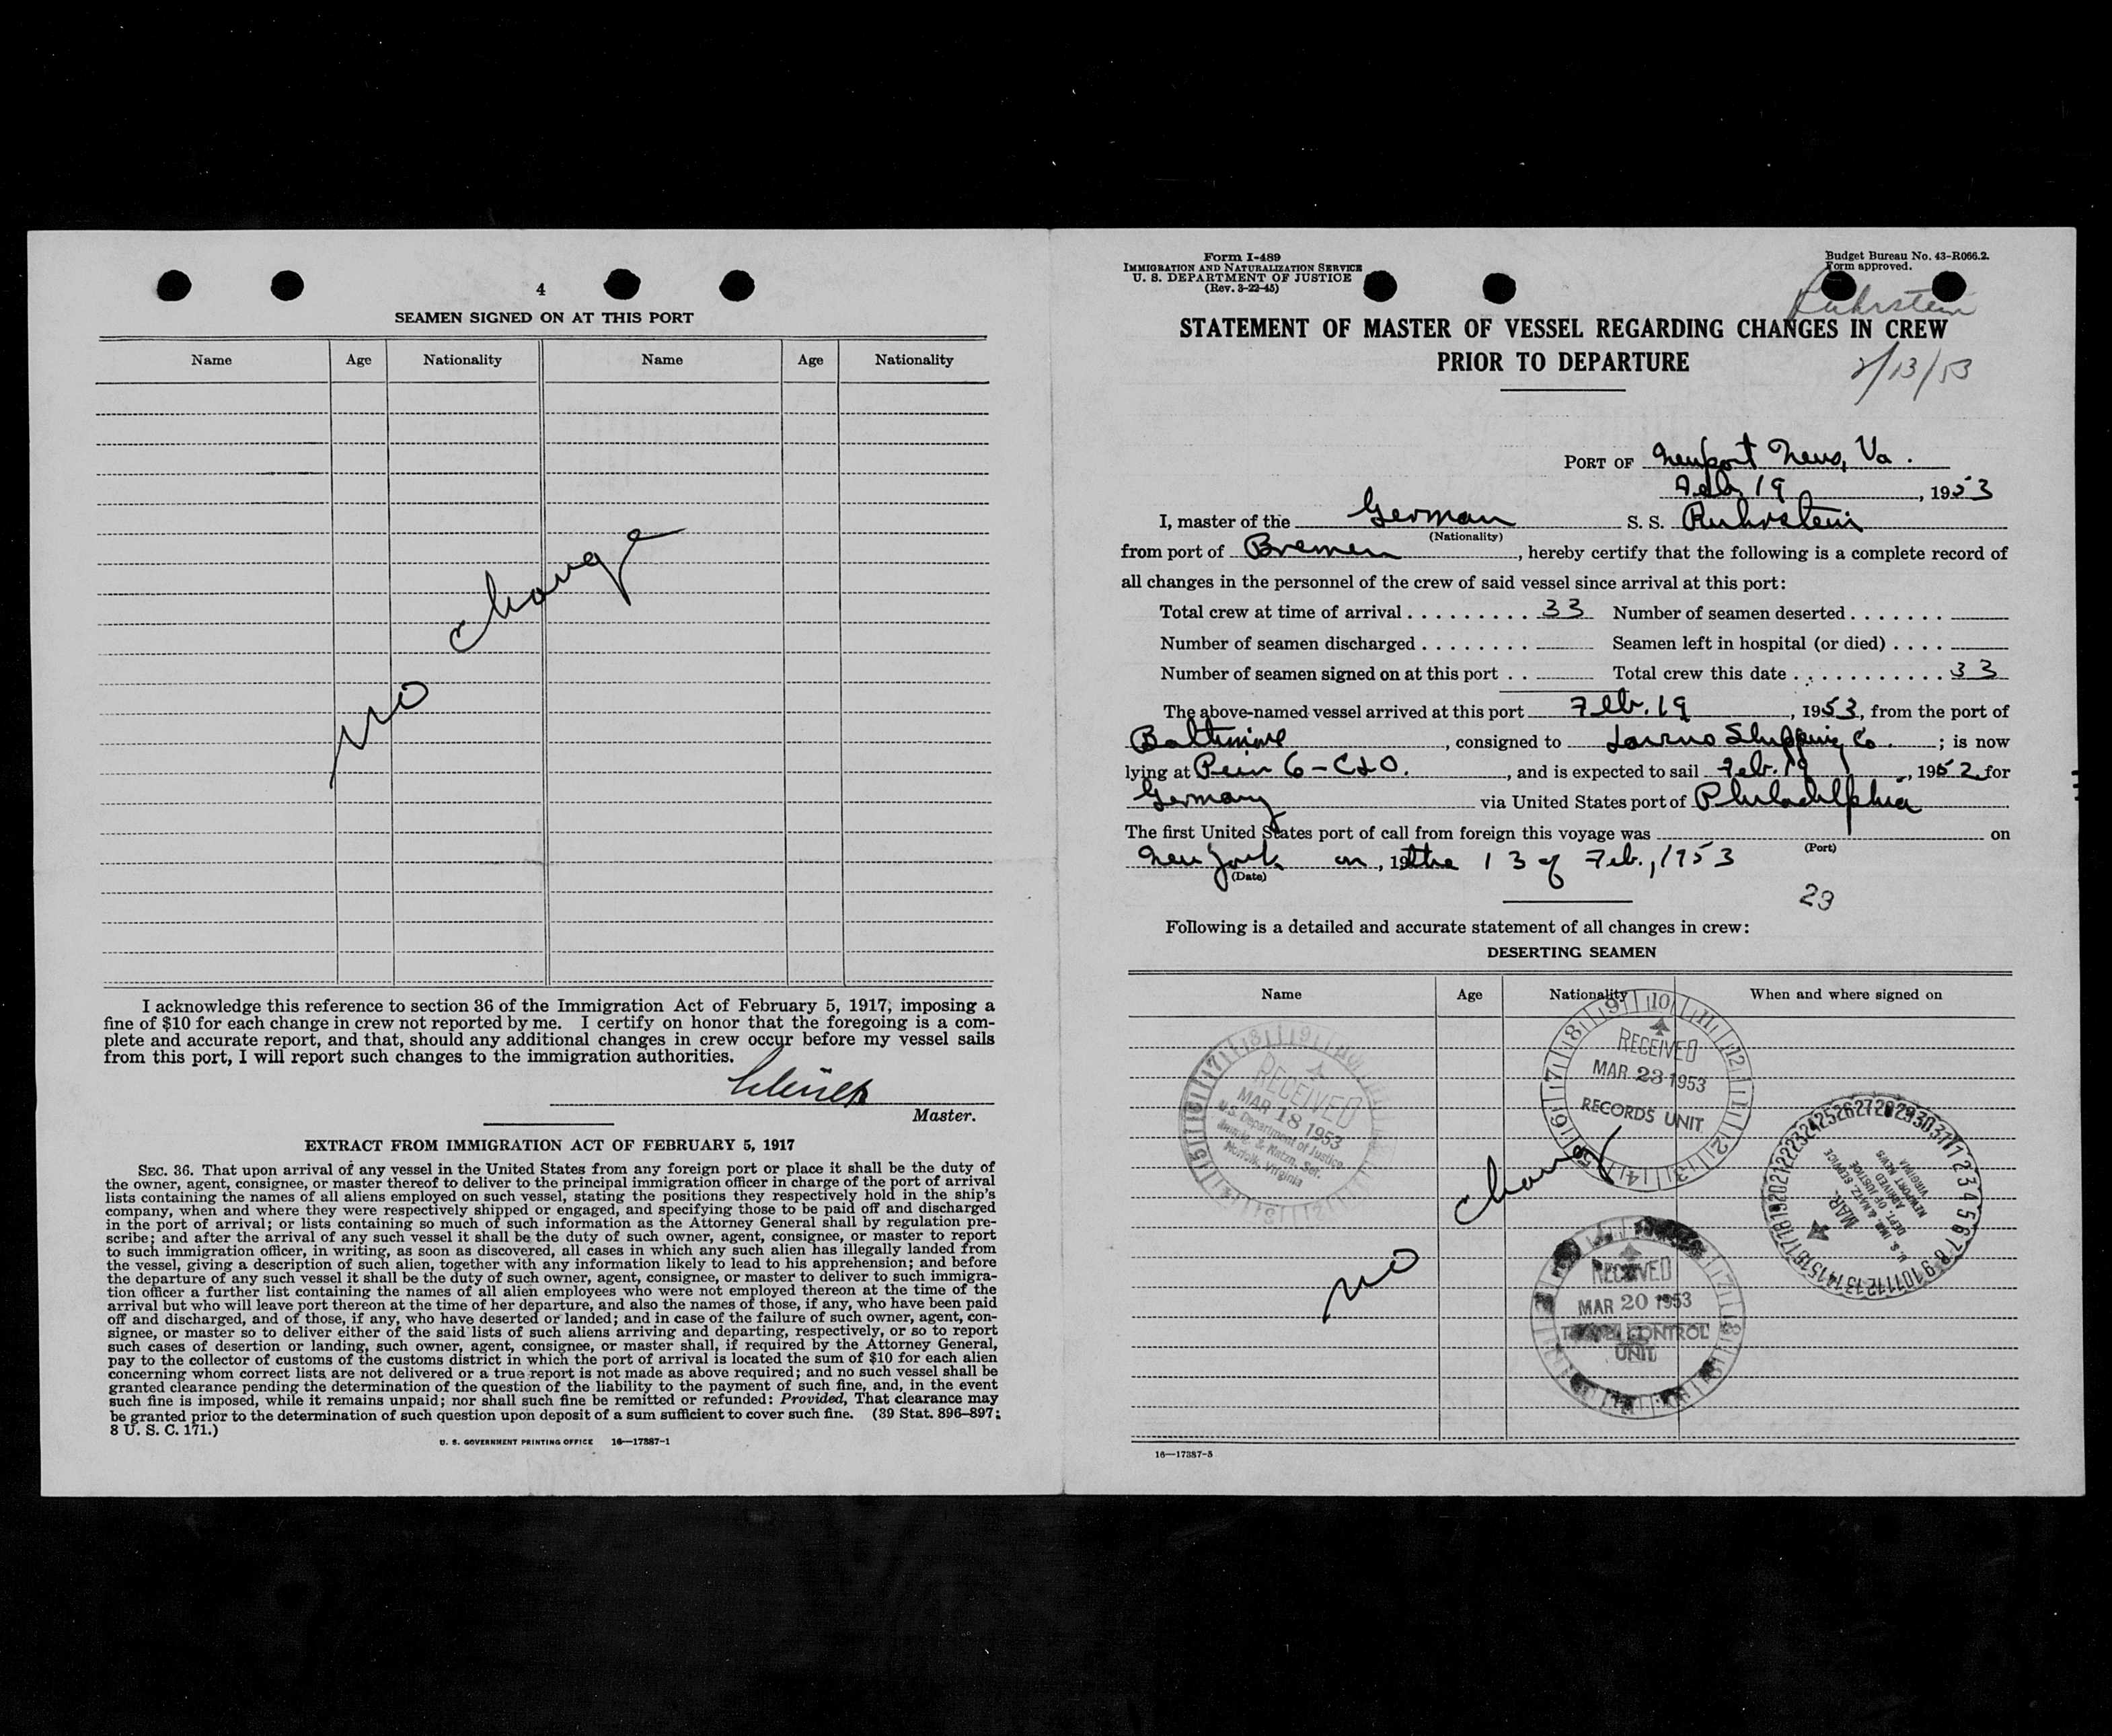 4
SEAMEN SIGNED ON AT THIS PORT
Name Age Nationality Name Age Nationality
no change
I acknowledge this reference to section 36 of the Immigration Act of February 5, 1917, imposing a
fine of $10 for each change in crew not reported by me. I certify on honor that the foregoing is a com-
plete and accurate report, and that, should any additional changes in crew occur before my vessel sails
from this port, I will report such changes to the immigration authorities.
Master.
EXTRACT FROM IMMIGRATION ACT OF FEBRUARY 5, 1917
SEC. 36. That upon arrival of any vessel in the United States from any foreign port or place it shall be the duty of
the owner, agent, consignee, or master thereof to deliver to the principal immigration officer in charge of the port of arrival
lists containing the names of all aliens employed on such vessel, stating the positions they respectively hold in the ship's
company, when and where they were respectively shipped or engaged, and specifying those to be paid off and discharged
in the port of arrival; or lists containing so much of such information as the Attorney General shall by regulation pre-
scribe; and after the arrival of any such vessel it shall be the duty of such owner, agent, consignee, or master to report
to such immigration officer, in writing, as soon as discovered, all cases in which any such alien has illegally landed from
the vessel, giving a description of such alien, together with any information likely to lead to his apprehension; and before
the departure of any such vessel it shall be the duty of such owner, agent, consignee, or master to deliver to such immigra-
tion officer a further list containing the names of all alien employees who were not employed thereon at the time of the
arrival but who will leave port thereon at the time of her departure, and also the names of those, if any, who have been paid
off and discharged, and of those, if any, who have deserted or landed; and in case of the failure of such owner, agent, con-
signee, or master so to deliver either of the said lists of such aliens arriving and departing, respectively, or so to report
such cases of desertion or landing, such owner, agent, consignee, or master shall, if required by the Attorney General,
pay to the collector of customs of the customs district in which the port of arrival is located the sum of $10 for each alien
concerning whom correct lists are not delivered or a true report is not made as above required; and no such vessel shall be
granted clearance pending the determination of the question of the liability to the payment of such fine, and, in the event
such fine is imposed, while it remains unpaid; nor shall such fine be remitted or refunded: Provided, That clearance may
be granted prior to the determination of such question upon deposit of a sum sufficient to cover such fine. (39 Stat. 896–897;
8 U. S. C. 171.)
U. S. GOVERNMENT PRINTING OFFICE 16—17387-1
Form I-489
IMMIGRATION AND NATURALIZATION SERVICE
U. S. DEPARTMENT OF JUSTICE
(Rev. 3-22-45)
Budget Bureau No. 43-R066.2.
Form approved.
Ruhrstein
STATEMENT OF MASTER OF VESSEL REGARDING CHANGES IN CREW
PRIOR TO DEPARTURE
2/13/53
PORT OF Newport News, Va.
Feb. 19, 1953
I, master of the German S. S. Ruhrstein
(Nationality)
from port of Bremen, hereby certify that the following is a complete record of
all changes in the personnel of the crew of said vessel since arrival at this port:
Total crew at time of arrival 33 Number of seamen deserted
Number of seamen discharged Seamen left in hospital (or died)
Number of seamen signed on at this port Total crew this date 33
The above-named vessel arrived at this port Feb. 19, 1953, from the port of
Baltimore, consigned to Shipping Co.; is now
lying at Pier 6 - C&O., and is expected to sail Feb. 19, 1952 for
Germany via United States port of Philadelphia
The first United States port of call from foreign this voyage was on
(Port)
New York on, 19 the 13 of Feb., 1953
(Date)
23
Following is a detailed and accurate statement of all changes in crew:
DESERTING SEAMEN
Name Age Nationality When and where signed on
no change
RECEIVED
MAR 18 1953
U.S. Department of Justice
Immig. & Natzn. Ser.
Norfolk, Virginia
RECEIVED
MAR 23 1953
RECORDS UNIT
U. S. IMM. & NATZ. SERVICE
DEPT. OF JUSTICE
ARRIVED
NEWPORT NEWS
VIRGINIA
MAR.
RECEIVED
MAR 20 1953
CONTROL
UNIT
16—17387-5